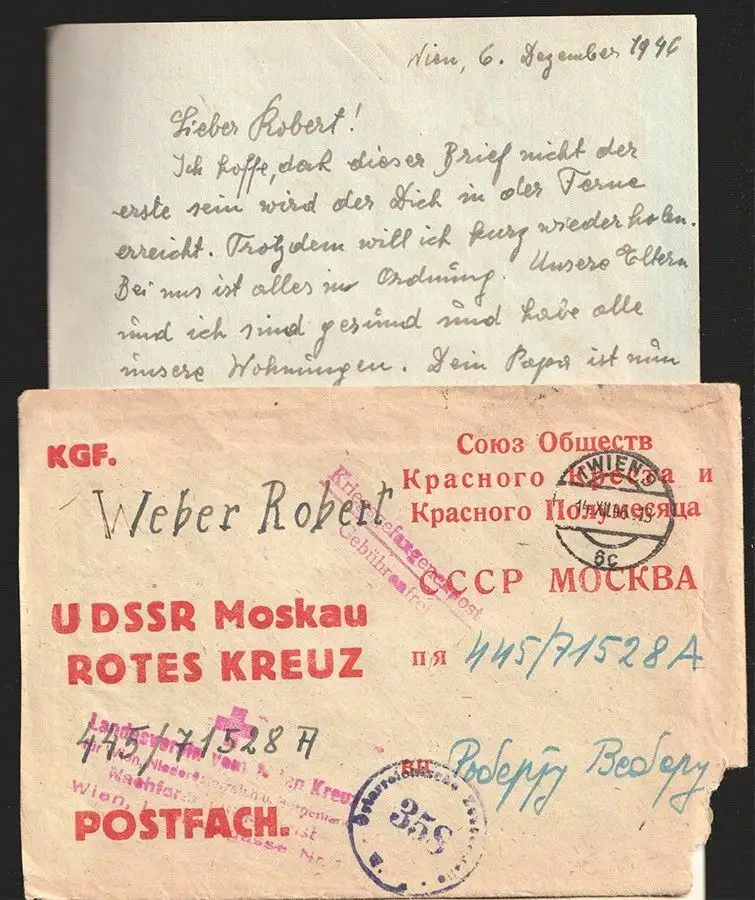 Wien, 6. Dezember 1946
Lieber Robert!
Ich hoffe, daß dieser Brief nicht der
erste sein wird der Dich in der Ferne
erreicht. Trotzdem will ich kurz wiederholen.
Bei uns ist alles in Ordnung. Unsere Eltern
und ich sind gesund und habe alle
unsere Wohnungen. Dein Papa ist nun
KGF.
Weber Robert
Kriegsgefangenenpost
Gebührenfrei
Союз Обществ
Красного Креста и
Красного Полумесяца
СССР МОСКВА
WIEN 9
14.XII.46.19
6c
UDSSR Moskau
ROTES KREUZ
п/я 445/71528 A
445/71528 A
Landesverein vom Roten Kreuz
für Wien, Niederösterreich u. Burgenland
Wien, I.
gasse Nr.
POSTFACH.
вп Роберту Веберу
Österreichische Zensurstelle
358